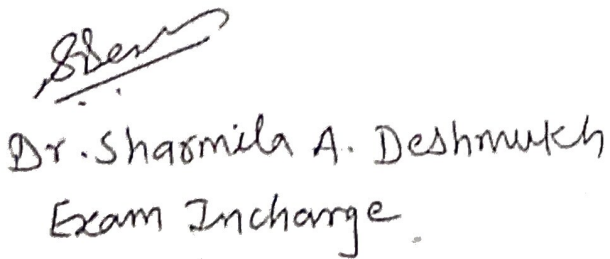 Dr. Sharmila A. Deshmukh
Exam Incharge